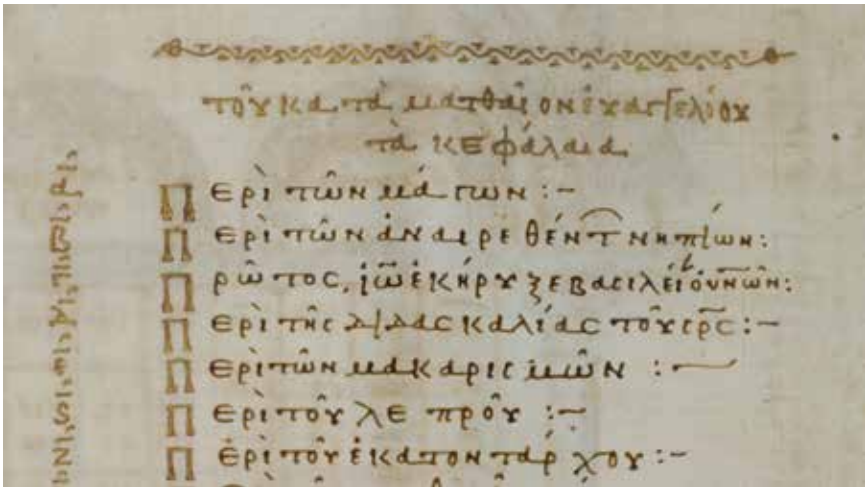 τοῦ κατὰ ματθαῖον ἐυαγγελίου
τὰ κεφάλαια
Περὶ τῶν μάγων :~
Περὶ τῶν ἀναιρεθέντ νηπίων :
Πρῶτος, ἰω ἐκήρυξε βασιλεί οὐνῶν :
Περὶ τῆς διδασκαλίας τοῦ
Περὶ τῶν μακαρισμῶν :~
Περὶ τοῦ λεπροῦ :~
Περὶ τοῦ ἑκατοντάρχου :~